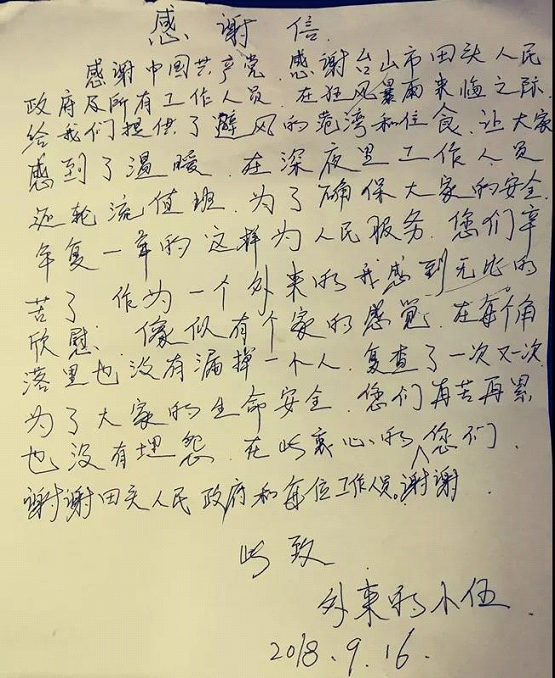 感谢信
感谢中国共产党.感谢台山市田头人民
政府及所有工作人员.在狂风暴雨来临之际.
给我们提供了避风的港湾和住食.让大家
感到了温暖.在深夜里工作人员
还轮流值班.为了确保大家的安全.
年复一年的这样为人民服务.您们辛
苦了 作为一个外来的我感到无比的
欣慰.像似有个家的感觉.在每个角
落里也没有漏掉一个人.复查了一次又一次.
为了大家的生命安全.您们再苦再累
也没有埋怨.在此衷心的谢谢您们.
谢谢田头人民政府和每位工作人员。
此致
外来的小伍.
2018.9.16.